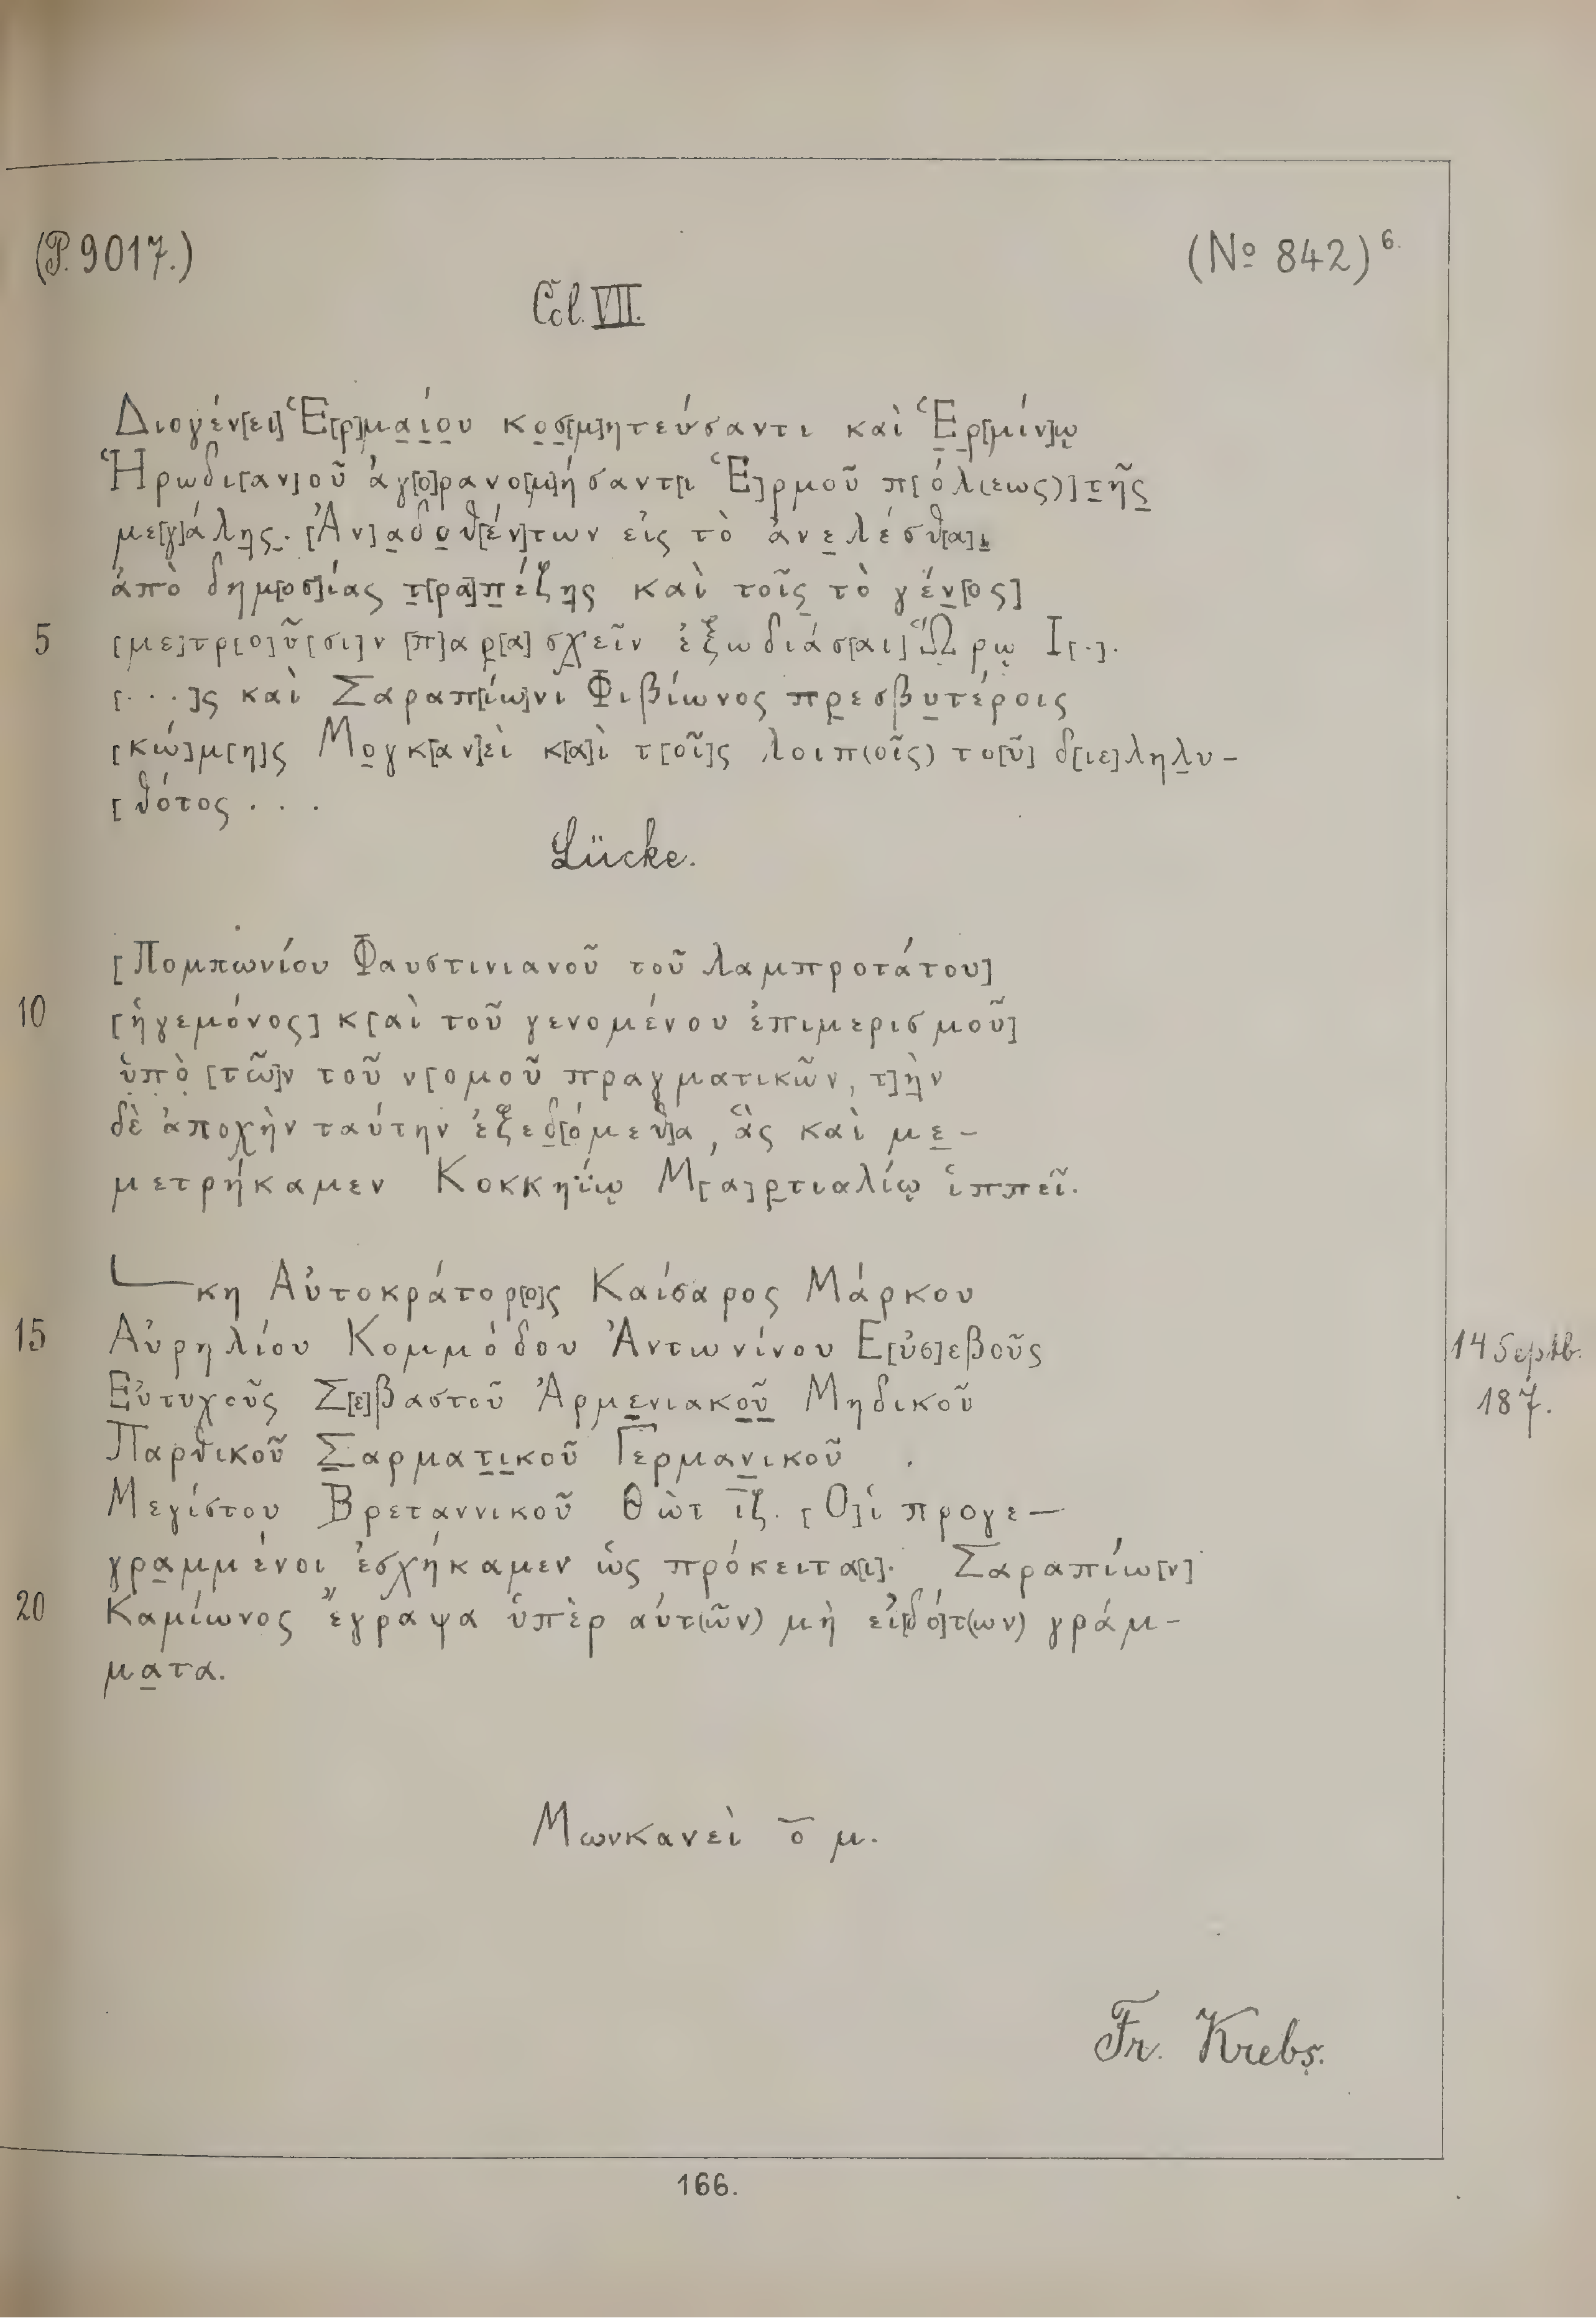 (P. 9017.)
(No 842) 6.
Col. VII.
Διογέν[ει] Ἑ[ρ]μαίου κοσ[μ]ητεύσαντι καὶ Ἑρ[μίν]ῳ
Ἡρωδι[αν]οῦ ἀγ[ο]ρανο[μ]ήσαντ[ι Ἑ]ρμοῦ π[όλ(εως)] τῆς
με[γ]άλης. [Ἀν]αδοθ[έν]των εἰς τὸ ἀνελέσθ[α]ι
ἀπὸ δημ[οσ]ίας τ[ρα]πέζης καὶ τοῖς τὸ γέν[ος]
5 [με]τρ[ο]ῦ[σι]ν [π]αρ[α]σχεῖν ἐξωδιάσ[αι] Ὥρῳ Ι[·]·
[···]ς καὶ Σαραπ[ίω]νι Φιβίωνος πρεσβυτέροις
[κώ]μ[η]ς Μογκ[αν]εὶ κ[α]ὶ τ[οῖ]ς λοιπ(οῖς) το[ῦ] δ[ιε]ληλυ-
[θότος . . .
Lücke.
[Πομπωνίου Φαυστινιανοῦ τοῦ λαμπροτάτου]
10 [ἡγεμόνος] κ[αὶ τοῦ γενομένου ἐπιμερισμοῦ]
ὑπὸ [τῶ]ν τοῦ ν[ομοῦ πραγματικῶν, τ]ὴν
δὲ ἀποχὴν ταύτην ἐξεδ[όμεθ]α, ἃς καὶ με-
μετρήκαμεν Κοκκηΐῳ Μ[α]ρτιαλίῳ ἱππεῖ.
∟κη Αὐτοκράτορ[ο]ς Καίσαρος Μάρκου
15 Αὐρηλίου Κομμόδου Ἀντωνίνου Ε[ὐσ]εβοῦς
14 Septb.
Εὐτυχοῦς Σ[ε]βαστοῦ Ἀρμενιακοῦ Μηδικοῦ
187.
Παρθικοῦ Σαρματικοῦ Γερμανικοῦ
Μεγίστου Βρεταννικοῦ Θὼτ ῑζ. [Ο]ἱ προγε-
γραμμένοι ἐσχήκαμεν ὡς πρόκειτα[ι]. Σαραπίω[ν]
20 Καμίωνος ἔγραψα ὑπὲρ αὐτ(ῶν) μὴ εἰ[δό]τ(ων) γράμ-
ματα.
Μωνκανεὶ ο̄ μ.
Fr. Krebs.
166.